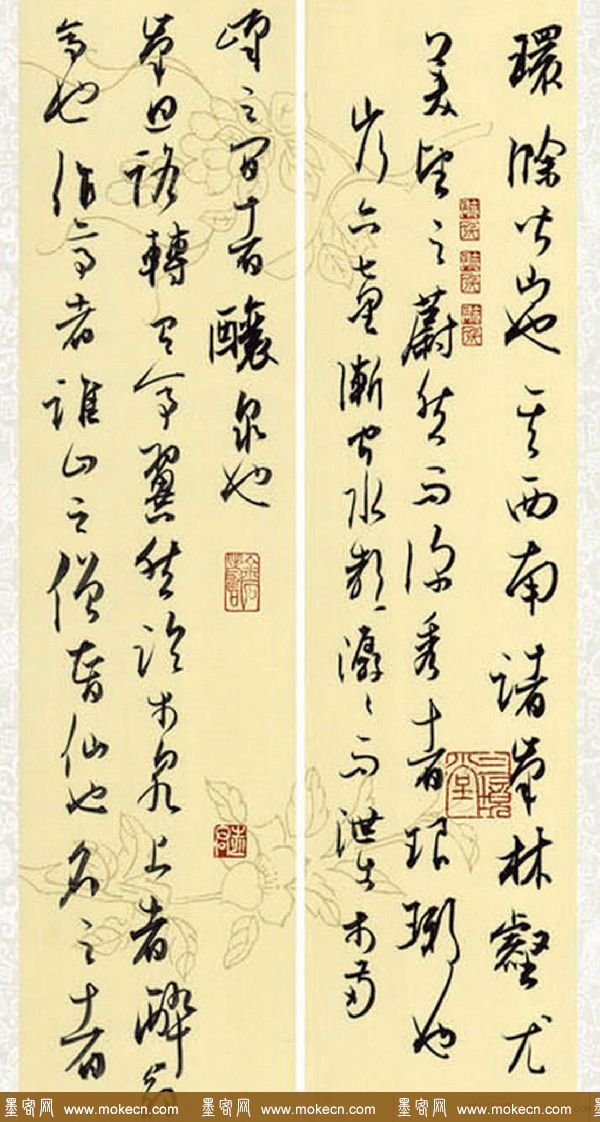 環滁皆山也其西南諸峯林壑尤
美望之蔚然而深秀者琅琊也
山行六七里漸聞水聲潺潺而泄出於兩
峰之間者釀泉也
峯回路轉有亭翼然臨於泉上者醉翁
亭也作亭者誰山之僧智仙也名之者
墨客网 www.mokecn.com 墨客网 www.mokecn.com 墨客网 www.mokecn.com